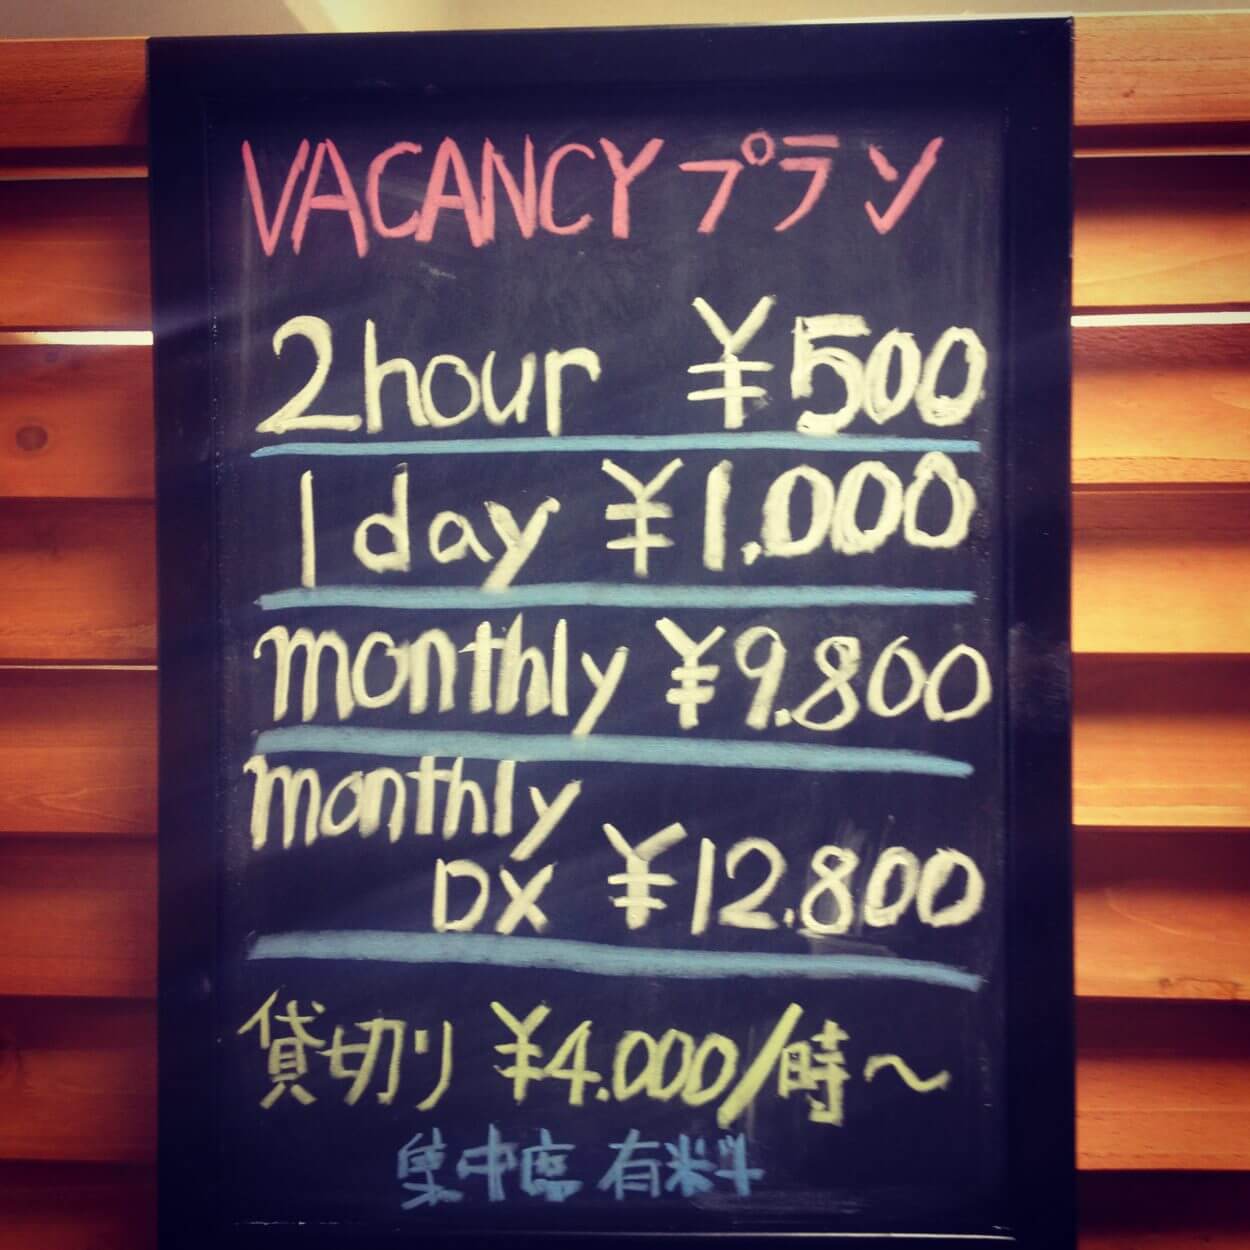 VACANCY プラン
2hour ¥500
1day ¥1.000
monthly ¥9.800
monthly
DX ¥12.800
貸切り ¥4.000/時～
集中席 有料